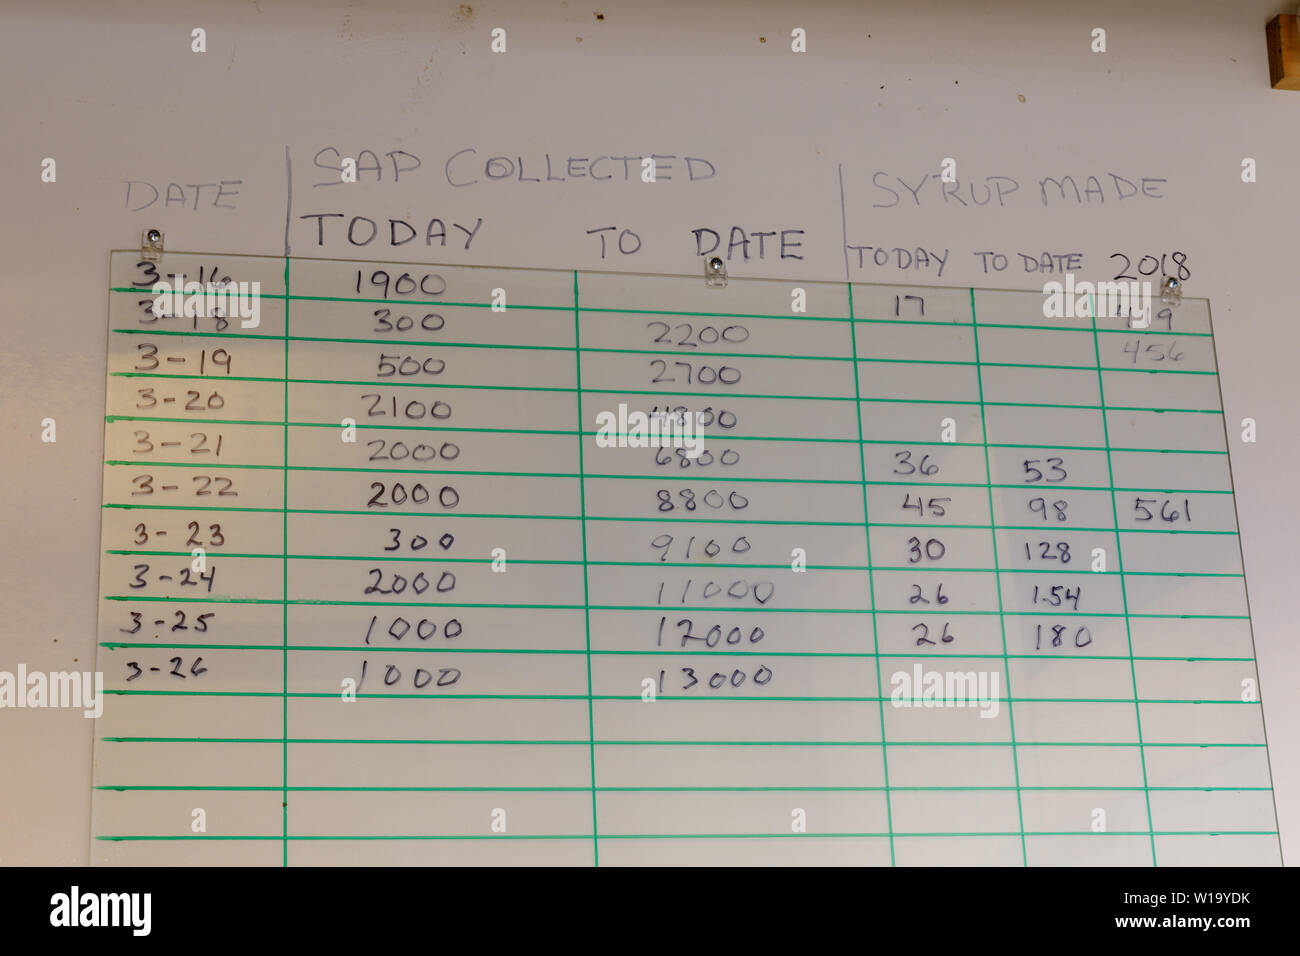 DATE SAP COLLECTED SYRUP MADE
TODAY TO DATE TODAY TO DATE 2018
3-16 1900 17 419
3-18 300 2200 456
3-19 500 2700
3-20 2100 4800
3-21 2000 6800 36 53
3-22 2000 8800 45 98 561
3-23 300 9100 30 128
3-24 2000 11000 26 154
3-25 1000 12000 26 180
3-26 1000 13000
alamy
Image ID: W19YDK
www.alamy.com